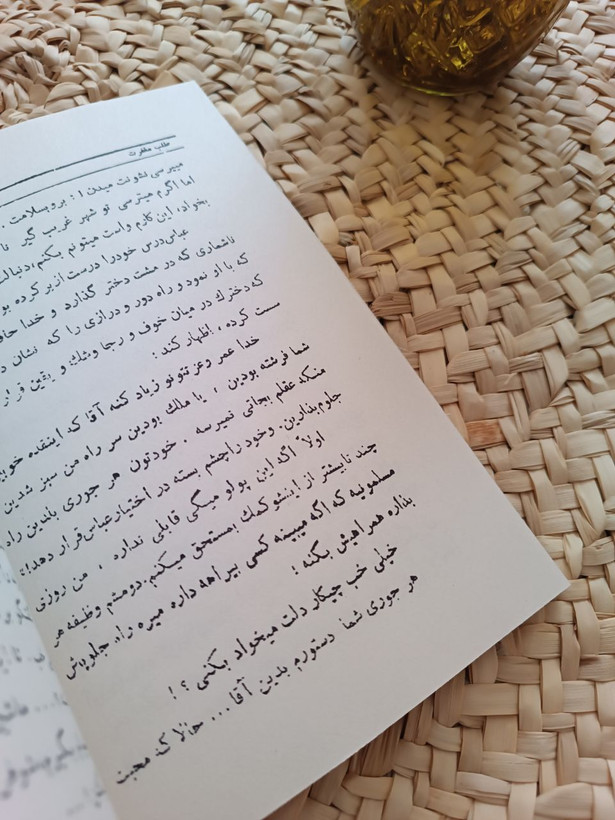 طلب مغفرت
میبرسی نشونت میدن ! : بروبسلامت .
اما اگرم میترسی تو شهر غریب گیر
بخواد، این کارم واست میتونم بکنم، دنبالت
عباس‌درس خودرا درست ازبر کرده بو
ناشماری که در مشت دختر گذارد و خدا حاف
که با او نمود و راه دور و درازی را که نشان د
که دخترك در میان خوف و رجا وشك و یقین قرار
سست کرده ، اظهار کند :
خدا عمر وعزتتونو زیاد کنه آقا که اینقده خوبی
شما فرشته بودین ، یا ملك بودین سر راه من سبز شدین
منکه عقلم بجائی نمیرسه . خودتون هر جوری باندین راه
جلوم بذارین. وخود راچشم بسته در اختیارعباس‌قرار دهد!
اولاً اگه این پولو میگی قابلی نداره ، من روزی
چند تا بیشتر از اینشو کمك بمستحق میکنم. دومنم وظیفه هر
مسلمونیه که اگه میبینه کسی بیراهه داره میره راه جلوپاش
بذاره همراهیش بکنه !
خیلی خب چیکار دلت میخواد بکنی ؟ !
هر جوری شما دستورم بدین آقا ... حالا که محبت